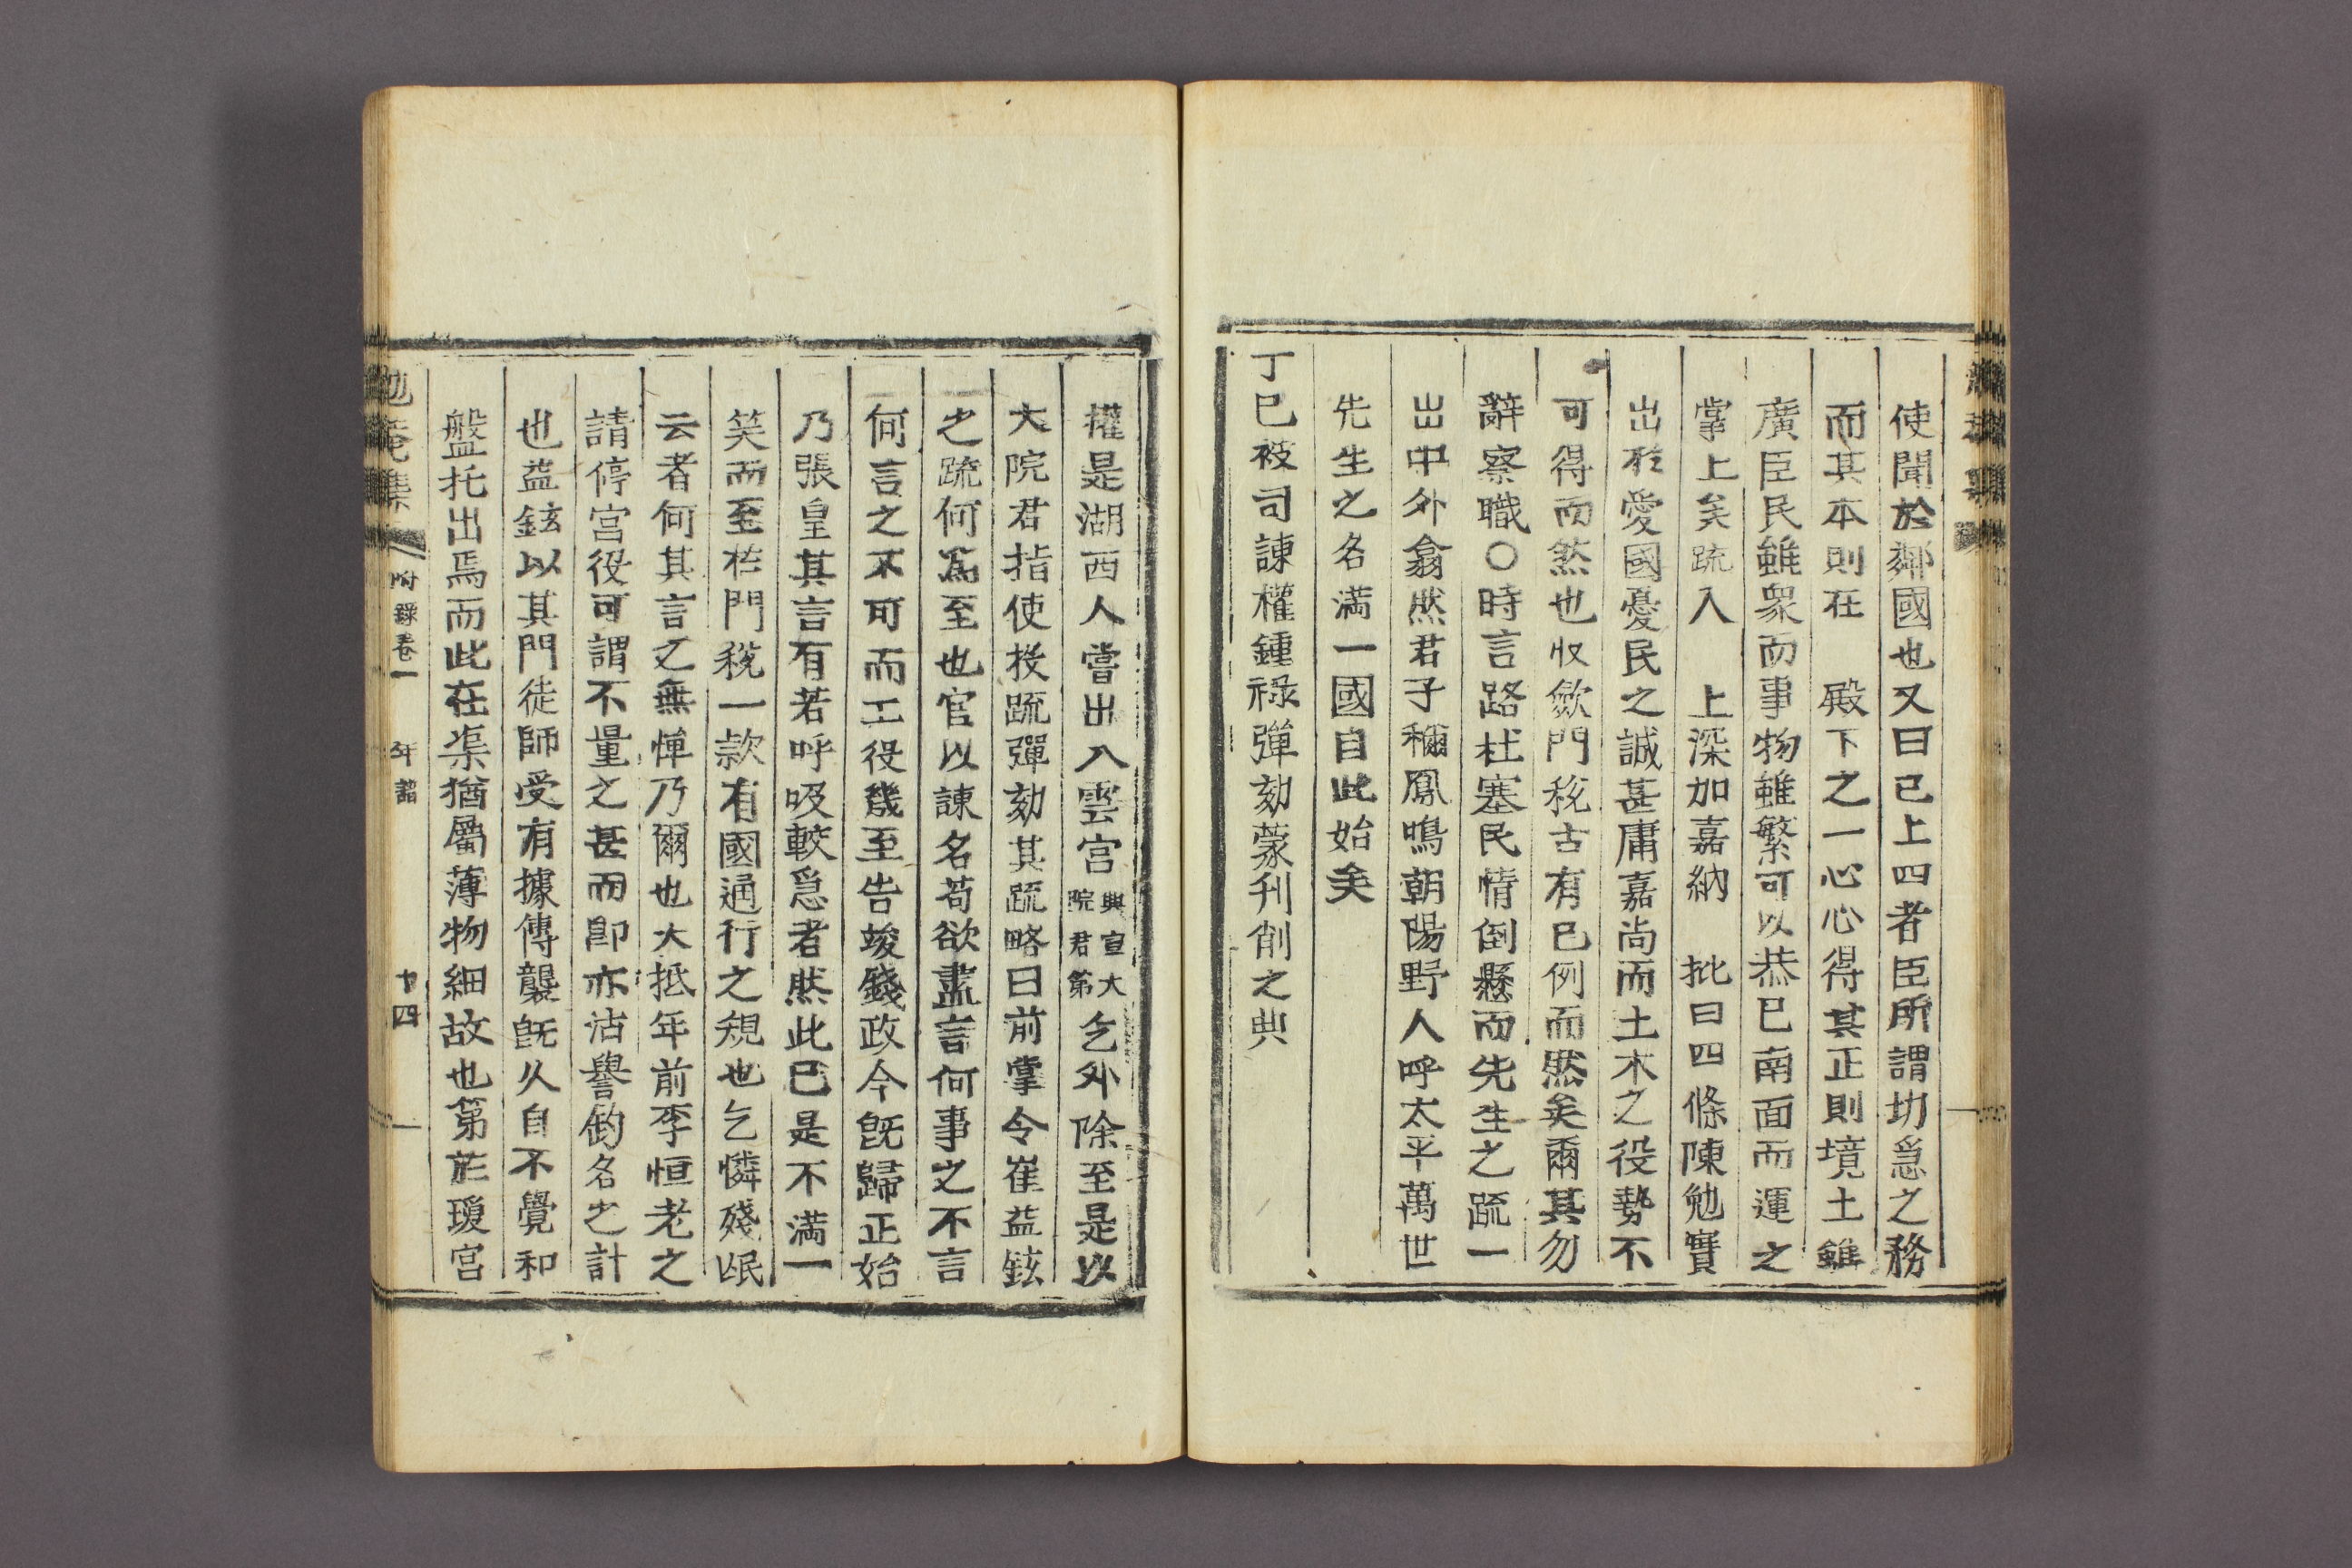 使聞於鄰國也又曰已上四者臣所謂切急之務
而其本則在　殿下之一心心得其正則境土雖
廣臣民雖衆而事物雖繁可以恭已南面而運之
掌上矣疏入　上深加嘉納　批曰四條陳勉實
出於愛國憂民之誠甚庸嘉尙而土木之役勢不
可得而然也收斂門稅古有已例而然矣爾其勿
辭察職○時言路杜塞民情倒懸而先生之疏一
出中外翕然君子稱鳳鳴朝陽野人呼太平萬世
先生之名滿一國自此始矣
丁巳被司諫權鍾祿彈劾蒙刊削之典
權是湖西人嘗出入雲宮興宣大院君第乞外除至是以
大院君指使投疏彈劾其疏略曰前掌令崔益鉉
之疏何爲至也官以諫名苟欲盡言何事之不言
何言之不可而工役幾至告竣錢政今旣歸正始
乃張皇其言有若呼吸較急者然此已是不滿一
笑而至於門稅一款有國通行之規也乞憐殘氓
云者何其言之無憚乃爾也大抵年前李恒老之
請停宮役可謂不量之甚而卽亦沽譽釣名之計
也益鉉以其門徒師受有據傳襲旣久自不覺和
盤托出焉而此在渠猶屬薄物細故也第於瓊宮
勉菴集　附錄卷一　年譜　十四